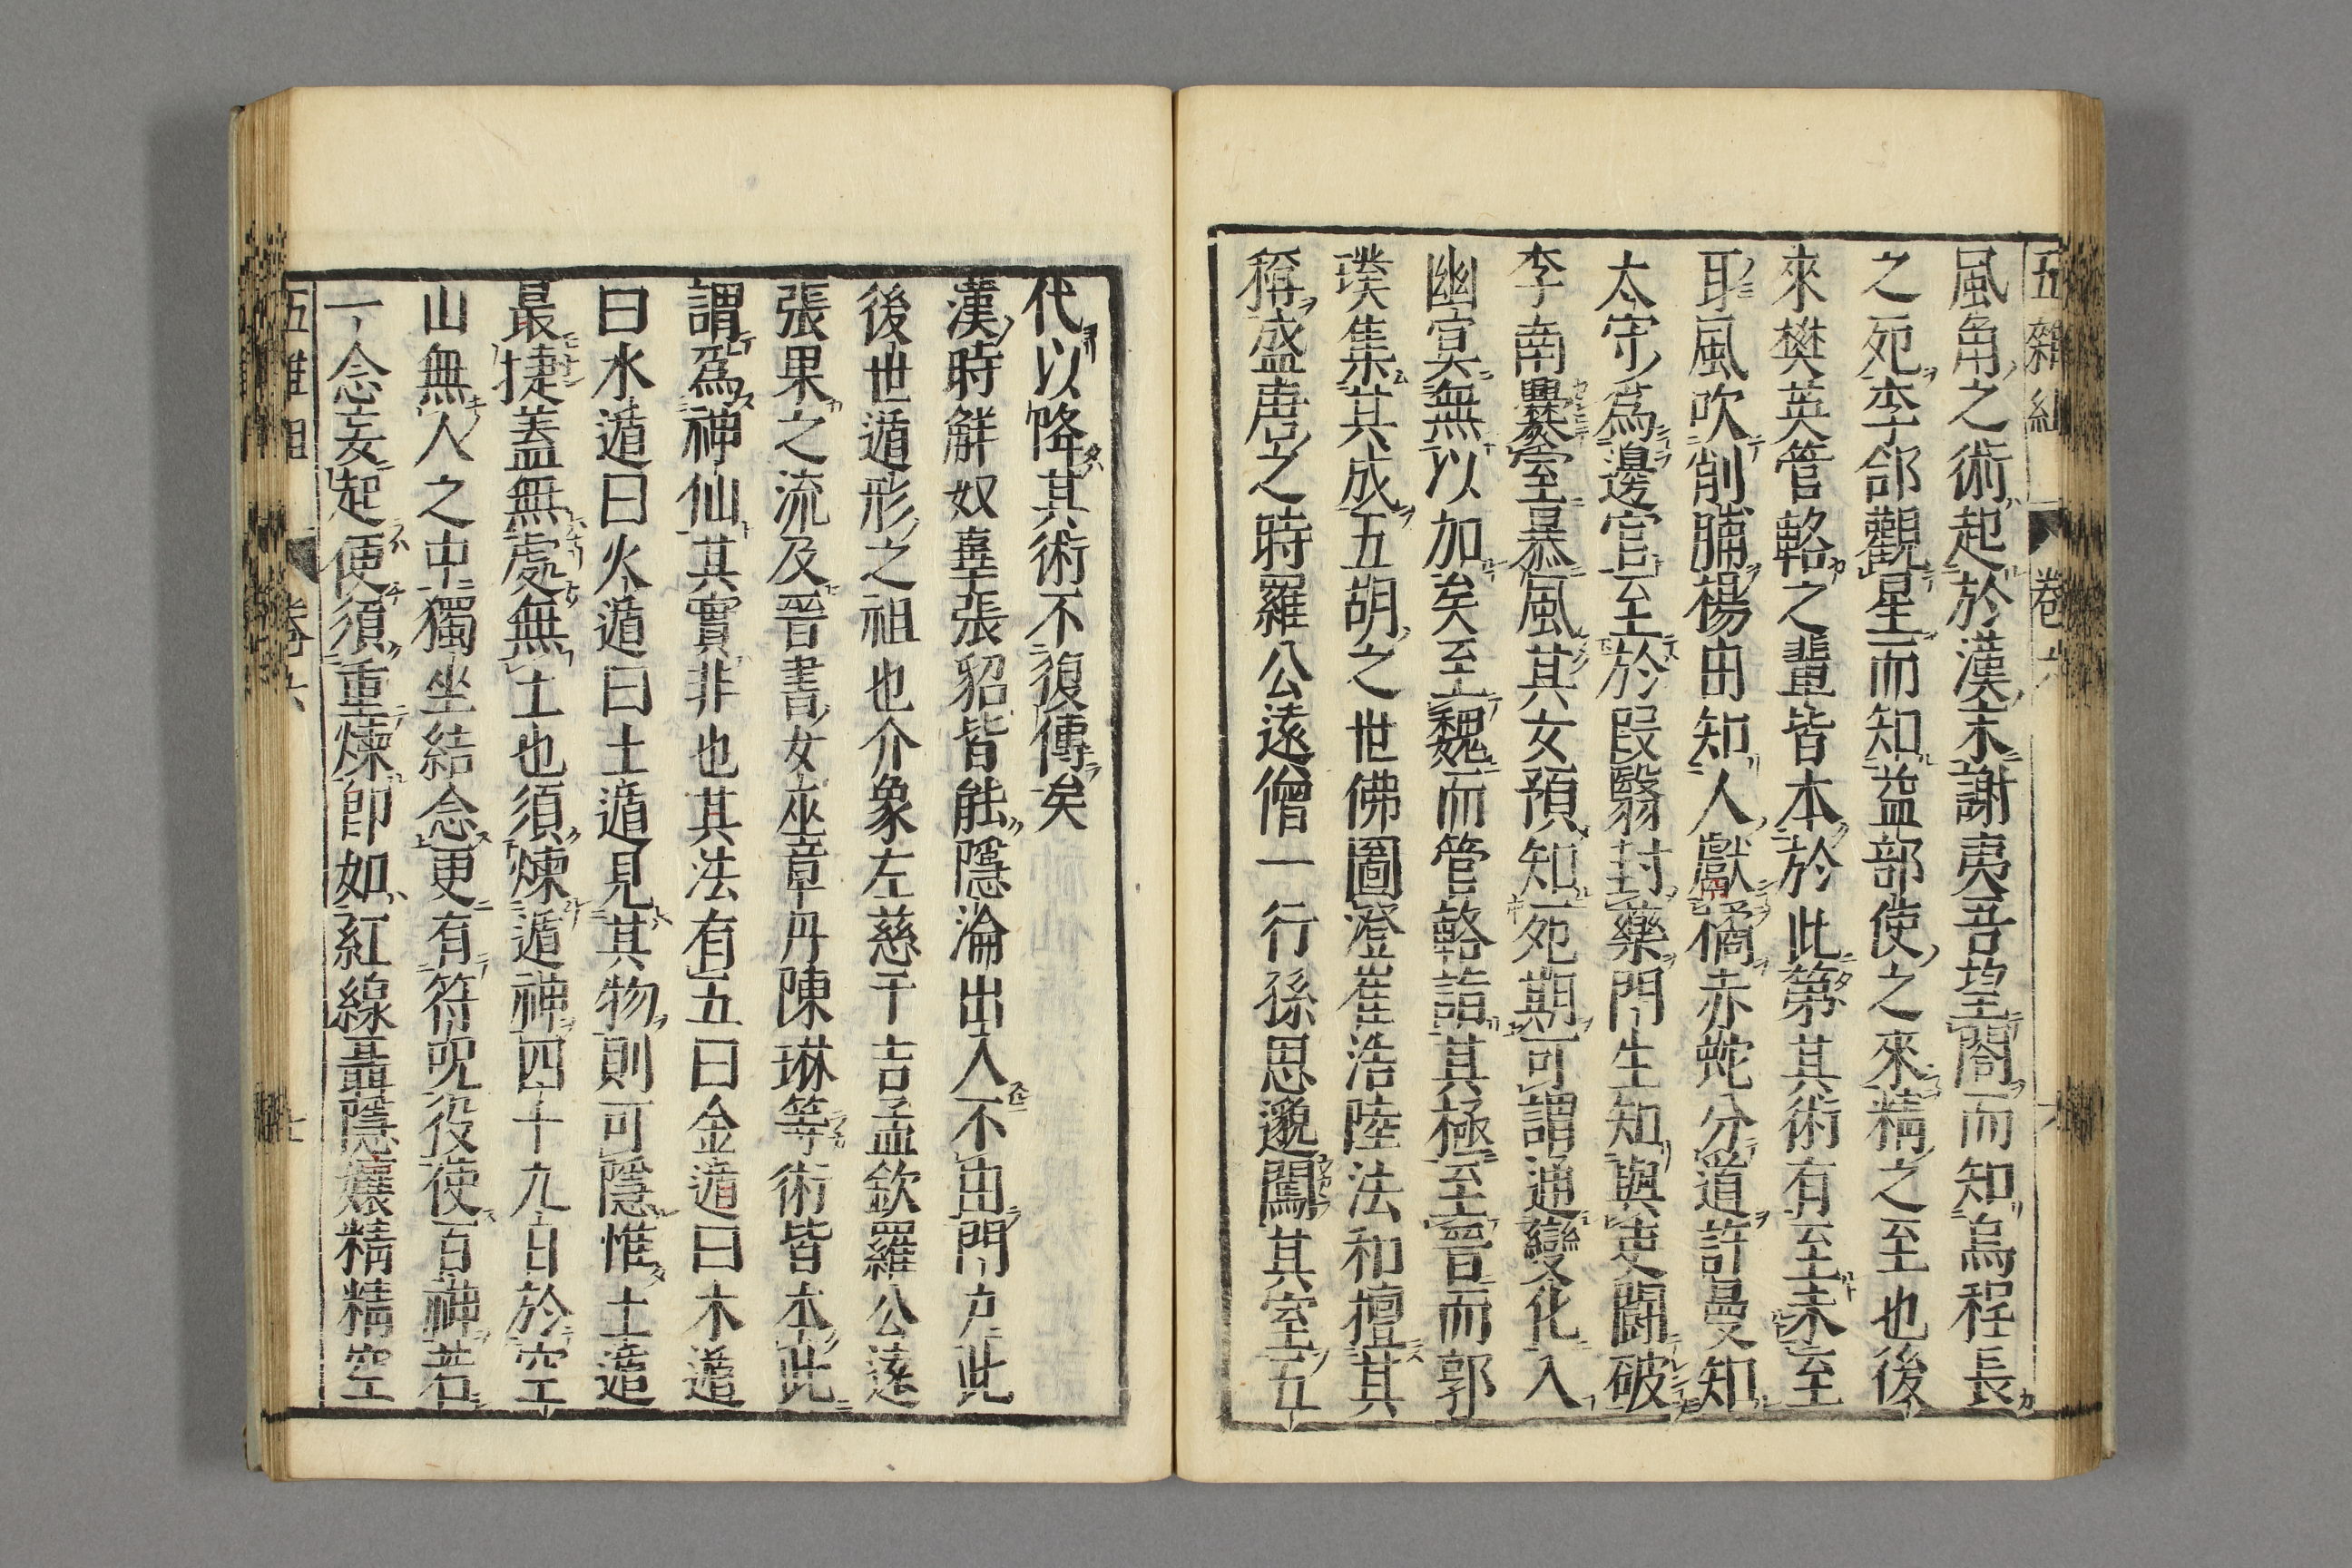 五雜組 卷六 六
風角之術起於漢末謝夷吾望閣而知烏程長
之死李郃觀星而知益部使之來精之至也後
來樊英管輅之輩皆本於此第其術有至未至
耳風吹削脯楊由知人獻橘赤蛇分道許曼知
太守為邊官至於段翳封藥門生知與吏鬪破
李南爨室暴風其女預知死期可謂通變化入
幽冥無以加矣至魏而管輅詣其極至晉而郭
璞集其成五胡之世佛圖澄崔浩陸法和擅其
稱盛唐之時羅公遠僧一行孫思邈闖其室五
代以降其術不復傳矣
漢時解奴辜張貂皆能隱淪出入不由門戶此
後世遁形之祖也介象左慈于吉孟欽羅公遠
張果之流及晉書女巫章丹陳琳等術皆本此
謂爲神仙其實非也其法有五曰金遁曰木遁
曰水遁曰火遁曰土遁見其物則可隱惟土遁
最捷蓋無處無土也須煉遁神四十九日於空
山無人之中獨坐結念更有符呪役使百神若
一念妄起便須重煉卽如紅線聶隱孃精精空
五雜組 卷六 七